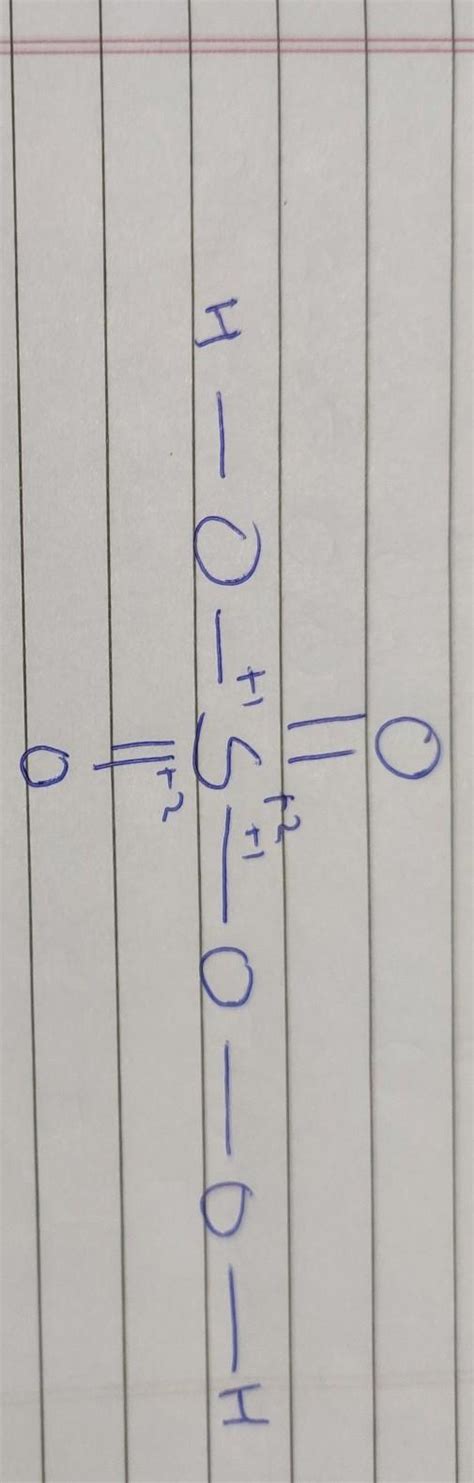 O
+2
H — O — +1 S +1 — O — O — H
+2
O